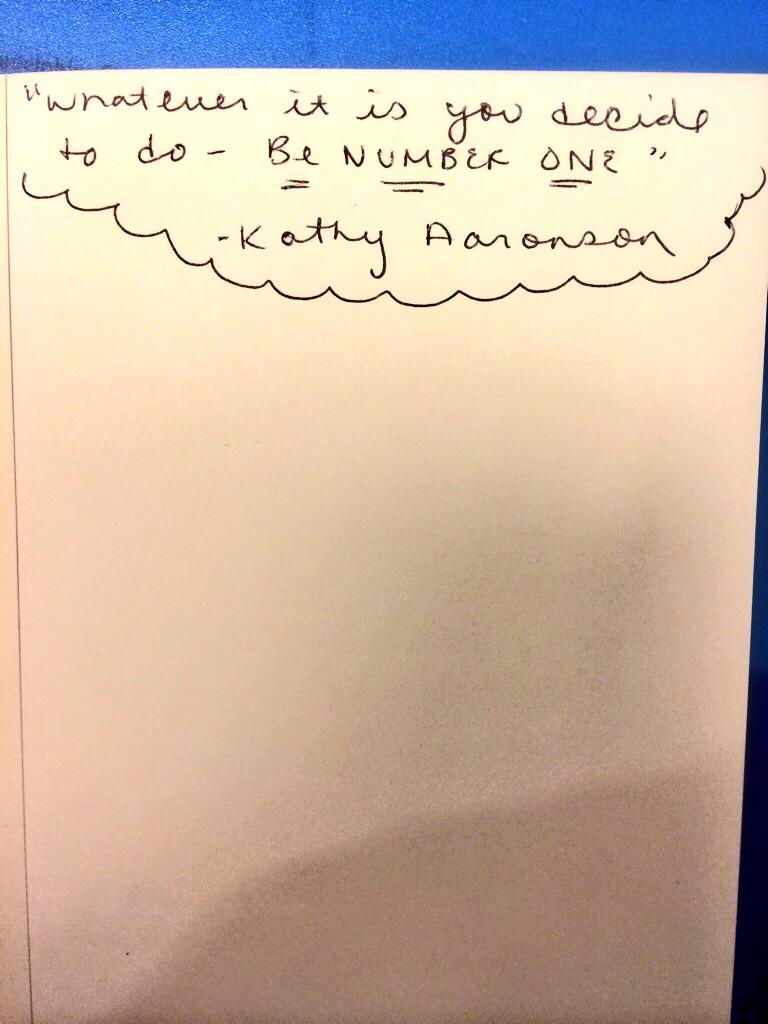 "whatever it is you decide
to do - Be NUMBER ONE"
-Kathy Aaronson